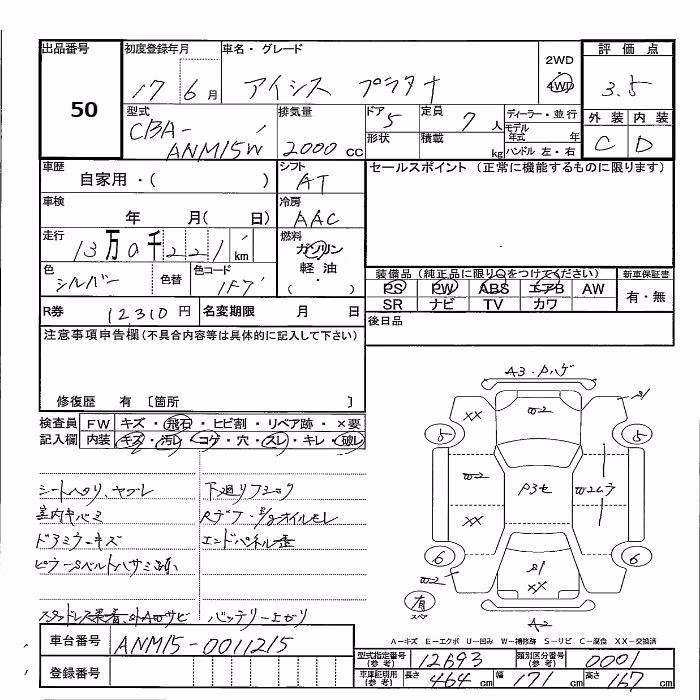 出品番号 初度登録年月 車名・グレード 2WD 評価点
50 17 6月 アイシス プラタナ 4WD 3.5
型式 排気量 ドア 5 定員 7人 ディーラー・並行 外装 内装
CBA- 形状 積載 kg モデル年式 年 C D
ANM15W 2000cc ハンドル 左・右
車歴 シフト セールスポイント (正常に機能するものに限ります)
自家用・( ) AT
車検 冷房
年 月( 日) AAC
走行 燃料
13万0千221km ガソリン
色 色替 色コード 軽油 装備品(純正品に限り○をつけてください) 新車保証書
シルバー 1F7 (・) PS PW ABS エアB AW 有・無
R券 12310円 名変期限 月 日 SR ナビ TV カワ
注意事項申告欄(不具合内容等は具体的に記入して下さい) 後日品
修復歴 有 〔箇所 〕
検査員 FW キズ・飛石・ヒビ割・リペア跡・×要
記入欄 内装 キズ・汚レ・コゲ・穴・スレ・キレ・破レ
シートヘタリ、ヤブレ 下廻りフミック
室内キバミ Rデフ・E/gオイルモレ
ドアミラーキズ エンドパネル歪
バッテリー上がり
A3・Pハゲ
XX W2 21
5 5
W2 P3セ W2ムラ
XX
6 6
W2 21
XX
有
スペア
A2
A=キズ E=エクボ U=凹み W=補修跡 S=サビ C=腐食 XX=交換済
車台番号 ANM15-0011215
登録番号
型式指定番号(参考) 12693 類別区分番号(参考) 0001
車庫証明用(参考) 長さ 464cm 幅 171cm 高さ 167cm